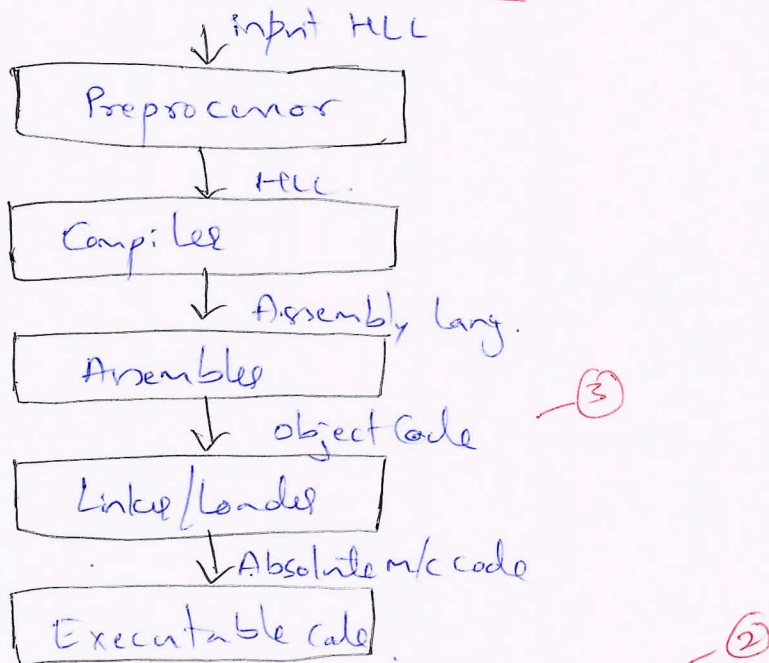 input HLL
Preprocessor
HLL.
Compiler
Assembly lang.
Assembler
3
object Code
Linker/Loader
Absolute m/c code
Executable code.
2